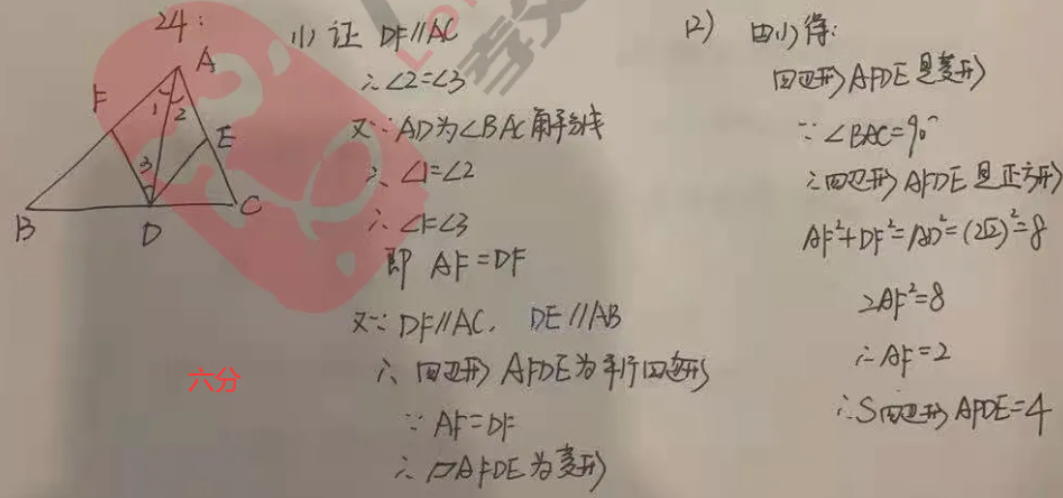 24:
A
F
1
2
E
3
B
D
C
(1) 证 DF∥AC
∴∠2=∠3
又∵AD为∠BAC角平分线
∴∠1=∠2
∴∠1=∠3
即 AF=DF
又∵DF∥AC, DE∥AB
∴四边形AFDE为平行四边形
∵AF=DF
∴▱AFDE为菱形
六分
(2) 由(1)得:
四边形AFDE是菱形
∵∠BAC=90°
∴四边形AFDE是正方形
AF²+DF²=AD²=(2√2)²=8
2AF²=8
∴AF=2
∴S四边形AFDE=4